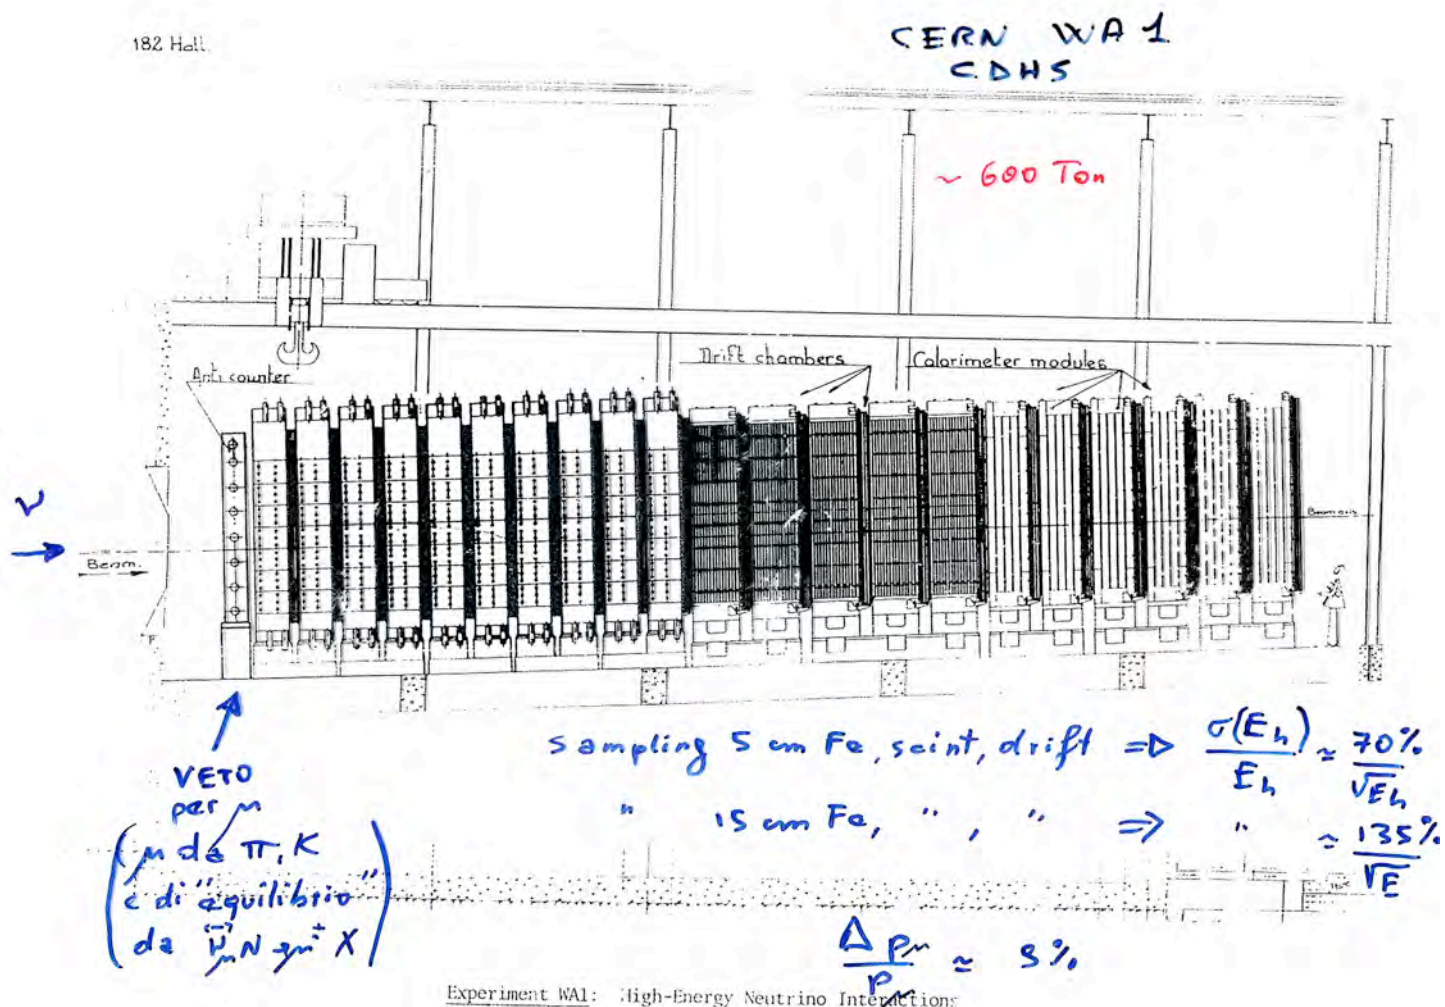 182 Hall.
CERN WA1
CDHS
~ 600 Ton
Drift chambers
Calorimeter modules
Anti counter
ν
Beam.
Beam axis
VETO
per μ
(μ da π, K
e di "equilibrio"
da N → μ± X)
Sampling 5 cm Fe, scint, drift ⇒ σ(Eh)/Eh ≃ 70%/√Eh
" 15 cm Fe, ", " ⇒ " ≃ 135%/√E
Δpμ/pμ ≃ 9%
Experiment WA1: High-Energy Neutrino Interactions